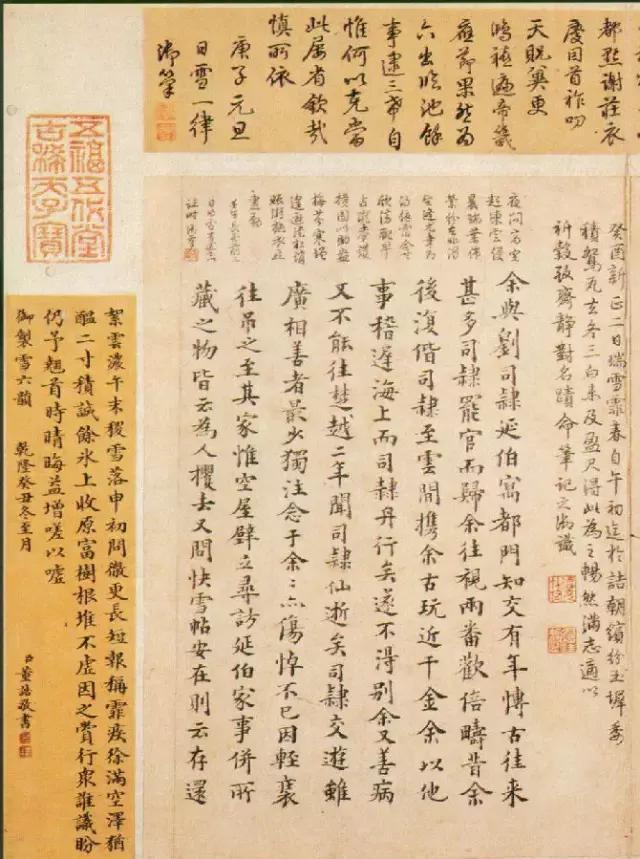 都點謝莊衣
慶因首祚叨
天貺冀更
鴻禧遍帝畿
應節果然為
六出臨池餘
事逮三希自
惟何以克當
此屢省欽哉
慎所依
庚子元旦
日雪一律
御筆
癸酉新正一日瑞雪霏春自午初迄於詰朝繽紛玉墀委
積鴛瓦去冬三白未及盈尺得此為之暢然滿志適以
祈穀致齋靜對名蹟命筆記之御識
起凍雲侵
余與劉司隸延伯寓都門知交有年博古往來
甚多司隸罷官而歸余往視兩番歡倍疇昔余
後復偕司隸至雲間攜余古玩近千金余以他
事稽遲海上而司隸舟行矣遂不得別余又善病
又不能往楚越二年聞司隸仙逝矣司隸交遊雖
廣相善者最少獨注念于余〻亦傷悼不已因輕裝
往吊之至其家惟空屋壁立尋訪延伯家事併所
藏之物皆云為人攫去又問快雪帖安在則云存還
五福五代堂
古稀天子寶
絮雲濃午末稷雪落申初問徹更長短報稱霏疾徐滿空澤猶
醞二寸積誠餘氷上收原富樹根堆不虛因之賞行衆誰識盼
仍予翹首時晴晦益增嗟以噓
御製雪六韻 乾隆癸丑冬至月
臣董誥敬書